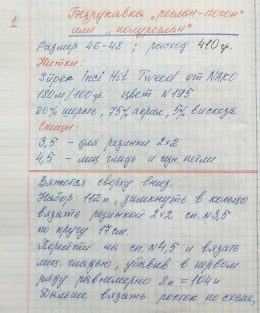 1
Безрукавка „реглан-погон"
или „полуреглан"
Размер 46-48; расход 410гр.
Нитки:
Süper inci Hit Tweed от NAKO
180м/100гр. цвет N195
20% шерсть, 75% акрил, 5% вискоза
Спицы:
3,5 - для резинки 2×2
4,5 - лиц. гладь и изн. петли
Вяжется сверху вниз.
Набор 112п, замкнуть в кольцо
вязать резинкой 2×2 сп. N3,5
по кругу 17см.
Перейти на сп. N4,5 и вязать
лиц. гладью, убавив в первом
ряду равномерно 8п = 104п
Дальше вязать росток по схеме,